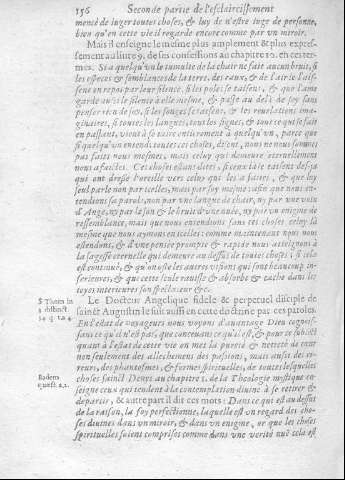 156 Seconde partie de l'esclaircissement
mencé de iuger toutes choses, & luy de n'estre iugé de personne,
bien qu'en cette vie il regarde encore comme par vn miroir.
Mais il enseigne le mesme plus amplement & plus expres-
sément au liure 9. de ses confessions au chapitre 10. en ces ter-
mes. Si à quelqu'vn le tumulte de la chair ne fait aucun bruit, si
les especes & semblances de la terre, des eaux, & de l'air se lais-
sent en repos par leur silence, si les poles se taisent, & que l'ame
garde aussi le silence à elle mesme, & passe au delà de soy sans
penser rien de soy, si les songes se taisent, & les reuelations ima-
ginaires, si toutes les langues, tous les signes, & tout ce qui se fait
en passant, vient à se taire entierement à quelqu'vn, parce que
si quelqu'vn entend, toutes ces choses, disent, nous ne nous sommes
pas faits nous mesmes, mais celuy qui demeure eternellement
nous a faictes. Ces choses estans dites, si
qui ont dressé l'oreille vers celuy qui les a faites, & que luy
seul parle non par icelles, mais par soy mesme: afin que nous en-
tendions sa parole, non par vne langue de chair, ny par vne voix
d'Ange, ny par le son & le bruit d'vne nuée, ny par vn enigme de
ressemblance, mais que nous entendions sans ces choses celuy là
mesme que nous aymons en icelles: comme maintenant nous nous
estendons, & d'vne pensée prompte & rapide nous atteignons à
la sagesse eternelle qui demeure au dessus de toutes choses: si cela
est continué, & qu'on oste les autres visions qui sont beaucoup in-
ferieures, & que cette seule rauisse & absorbe & cache dans les
ioyes interieures son spectateur &c.
S Thom in Le Docteur Angelique fidele & perpetuel disciple de
3 distinct sainct Augustin le suit aussi en cette doctrine par ces paroles.
En l'estat de voyageurs nous voyons d'auantage Dieu cognois-
sans ce qu'il n'est pas, que conceuant ce qu'il est, & pour ce subiect
quant à l'estat de cette vie en met la pureté & netteté de cœur
non seulement des allechemens des passions, mais aussi des er-
reurs, des phantosmes, & formes spirituelles, de toutes lesquelles
Eadem choses sainct Denys au chapitre 1. de la Theologie mystique en-
quæst. a.1. seigne ceux qui tendent à la contemplation diuine à se retirer &
departir, & autre part il dit ces mots: Dans ce qui est au dessus
de la raison, la foy perfectionne, laquelle est vn regard des cho-
ses diuines dans vn miroir, & dans vn enigme, or que les choses
spirituelles soient comprises comme dans vne verité nuë cela est